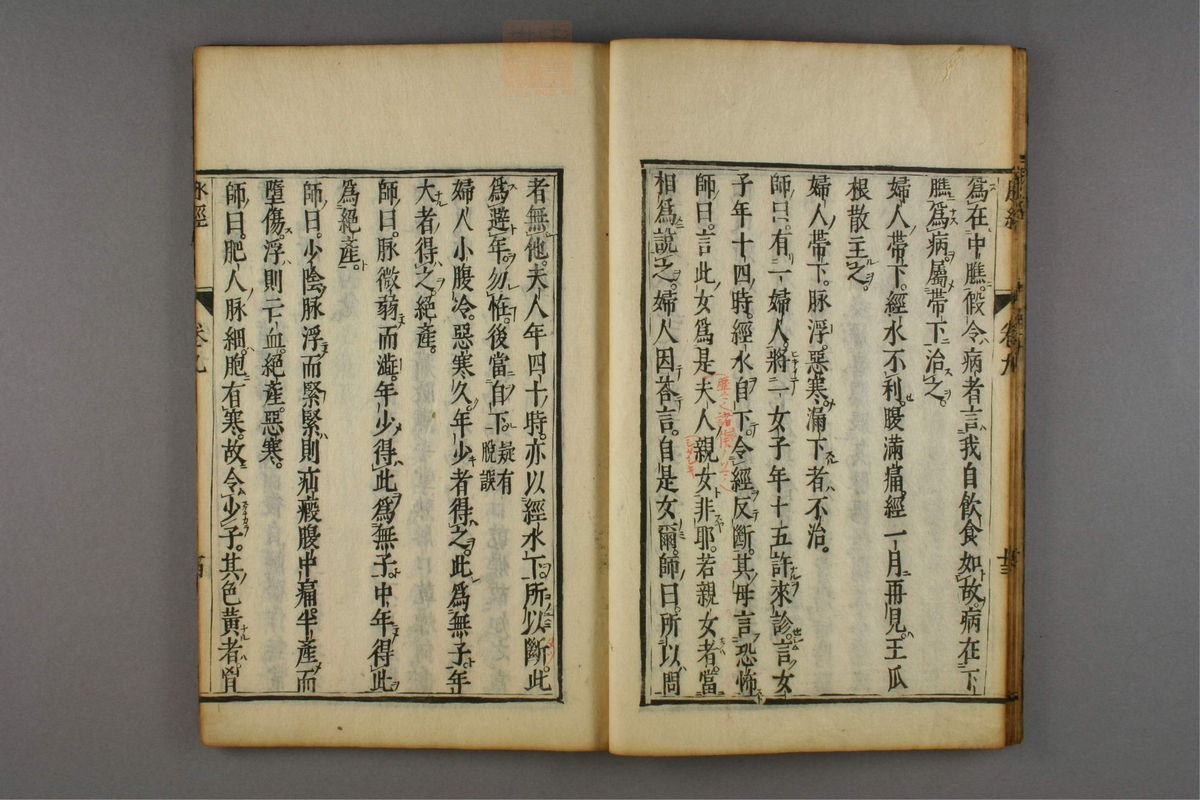 脉經
卷九
十三
爲在中瞧假令病者言我自飲食如故病在下
瞧爲病屬帶下治之
婦人帶下經水不利腹滿痛經一月再見王瓜
根散主之
婦人帶下脉浮惡寒漏下者不治
師曰有一婦人將一女子年十五許來診言女
子年十四時經水自下令經反斷其母言恐怖
師曰言此女爲是夫人親女非耶若親女者當
相爲說之婦人因荅言自是女爾師曰所以問
者無他夫人年四十時亦以經水下所以斷此
爲避年勿恠後當自下疑有脫誤
婦人小腹冷惡寒久年少者得之此爲無子年
大者得之絕產
師曰脉微弱而澁年少得此爲無子中年得此
爲絕產
師曰少陰脉浮而緊緊則疝瘕腹中痛半產而
墮傷浮則亡血絕產惡寒
師曰肥人脉細胞有寒故令少子其色黃者胷
脉經
卷九
十四